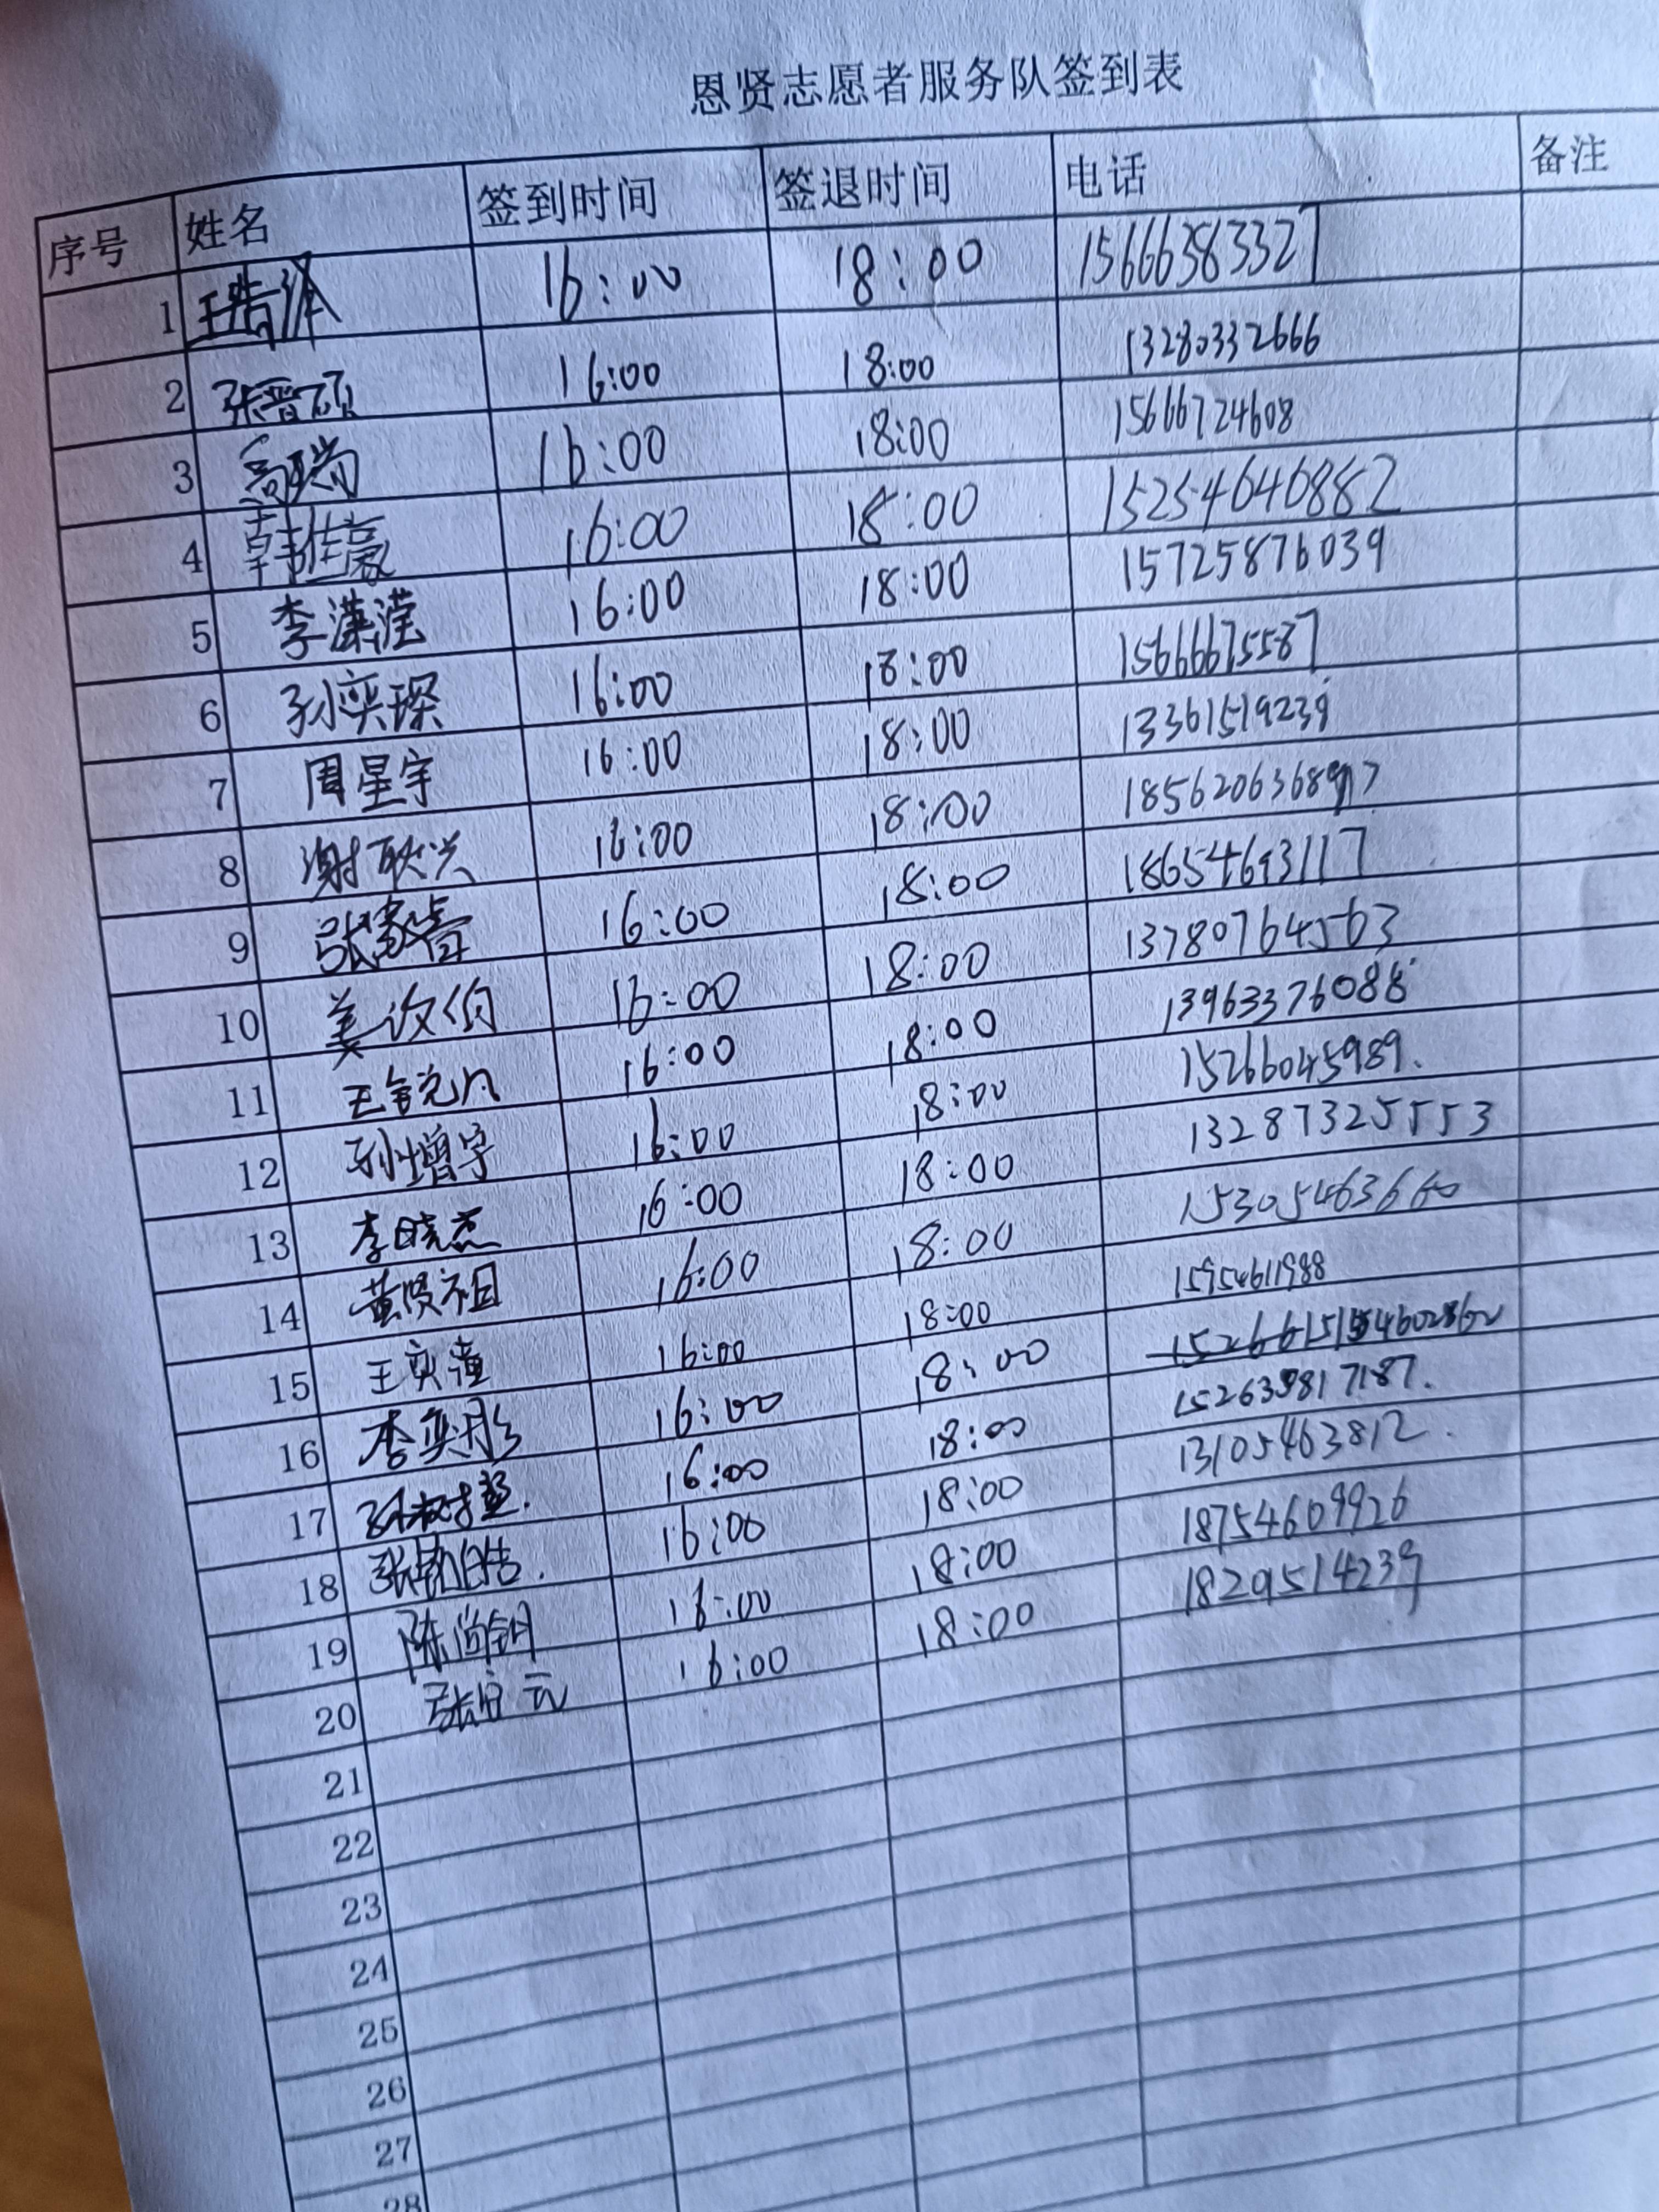 恩贤志愿者服务队签到表
序号 姓名 签到时间 签退时间 电话 备注
1 王浩泽 16:00 18:00 15666383327
2 张晋硕 16:00 18:00 13280332666
3 高瑞 16:00 18:00 15666724608
4 韩佳豪 16:00 18:00 15254640882
5 李潇滢 16:00 18:00 15725876039
6 孙奕琛 16:00 18:00 15666675587
7 周星宇 16:00 18:00 13361519239
8 谢耿兴 16:00 18:00
9 张家睿 16:00 18:00 18654693117
10 姜汶伯 16:00 18:00 13780764563
11 王锐凡 16:00 18:00 13963376088
12 孙增宇 16:00 18:00 15266045989.
13 李晓杰 16:00 18:00 13287325553
14 黄贤祖 16:00 18:00 15305463660
15 王奕潼 16:00 18:00 15954611988
16 李奕彤 16:00 18:00
17 16:00 18:00
18 16:00 18:00 13105463812.
19 陈尚钥 16:00 18:00 18754609926
20 张宁元 16:00 18:00 1829514239
21
22
23
24
25
26
27
28